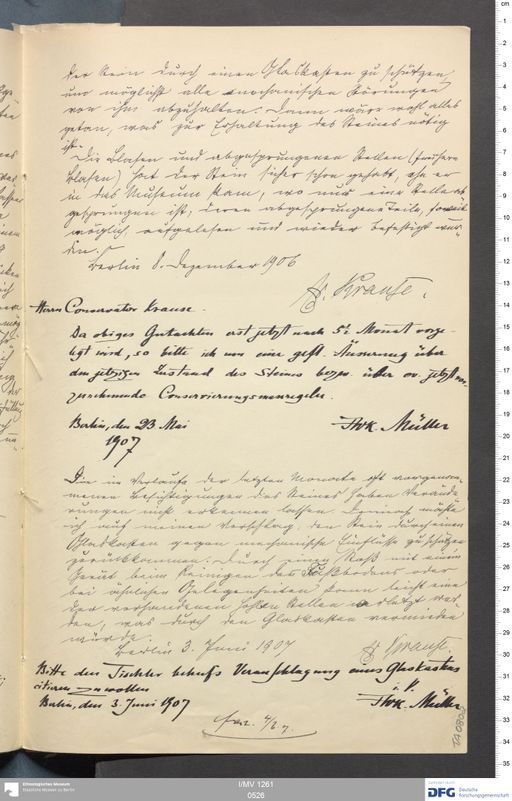 der Stein durch einen Glaskasten zu schützen
um möglichst alle mechanischen Störungen
von ihm abzuhalten. Dann wäre wohl alles
getan, was zur Erhaltung des Steines nötig
ist.
Die Blasen und abgesprungenen Stellen (frühere
Blasen) hat der Stein sicher schon gehabt, ehe er
in das Museum kam, wo nur eine Stelle ab
gesprungen ist, deren abgesprungene Teile, soweit
möglich, aufgelesen und wieder befestigt wur-
den.
Berlin 8. Dezember 1906
Krause.
Herrn Conservator Krause.
Da obiges Gutachten erst jetzt nach 5½ Monat vorge-
legt wird, so bitte ich um eine gefl. Äusserung über
den jetzigen Zustand des Steines bezw. über ev. jetzt vor-
zunehmende Conservierungsmassregeln.
Berlin, den 23 Mai
1907
FWK. Müller
Die im Verlaufe der letzten Monate oft vorgenom-
menen Besichtigungen des Steines haben Verände
rungen nicht erkennen lassen. Demnach möchte
ich auf meinen Vorschlag, den Stein durch einen
Glaskasten gegen mechanische Einflüsse zu schützen
zurückkommen. Durch einen Stoß mit einem
Gerät beim Reinigen des Fußbodens oder
bei ähnlichen Gelegenheiten kann leicht eine
der vorhandenen Stellen verletzt wer-
den, was durch den Glaskasten vermieden
würde.
Berlin 3. Juni 1907
Krause.
Bitte den Tischler behufs Veranschlagung eines Glaskastens
citieren zu wollen
i. V.
Berlin, den 3. Juni 1907
FWK. Müller
I/MV 1261
0526
Ethnologisches Museum
Staatliche Museen zu Berlin
DFG
Deutsche
Forschungsgemeinschaft